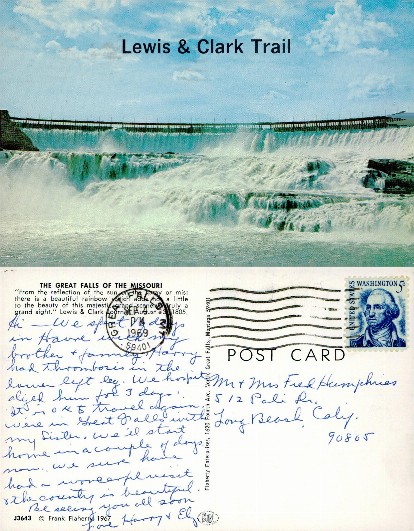 Lewis & Clark Trail
THE GREAT FALLS OF THE MISSOURI
"From the reflection of the sun on the spray or mist
there is a beautiful rainbow which adds not a little
to the beauty of this majestic grand scene truly a
grand sight." Lewis & Clark Journal August 1805.
Hi - We spent days
in Havre with my
brother + family. Harry
had thrombosis in the
lower left leg. We hospit
alized him for 3 days.
is O K to travel again,
were in Great Falls with
my Sister. We'll start
home in a couple of days
now. We sure have
had a wonderful visit
+ the country is beautiful.
Be seeing you all soon
Love Harry + El
J3643 © Frank Flaherty 1967
GREAT FALLS
1969
59401
5¢ WASHINGTON
UNITED STATES
POST CARD
Mr + Mrs Fred Humphries
512 Pali Dr.
Long Beach, Caly.
90805
Great Falls, Montana 59401